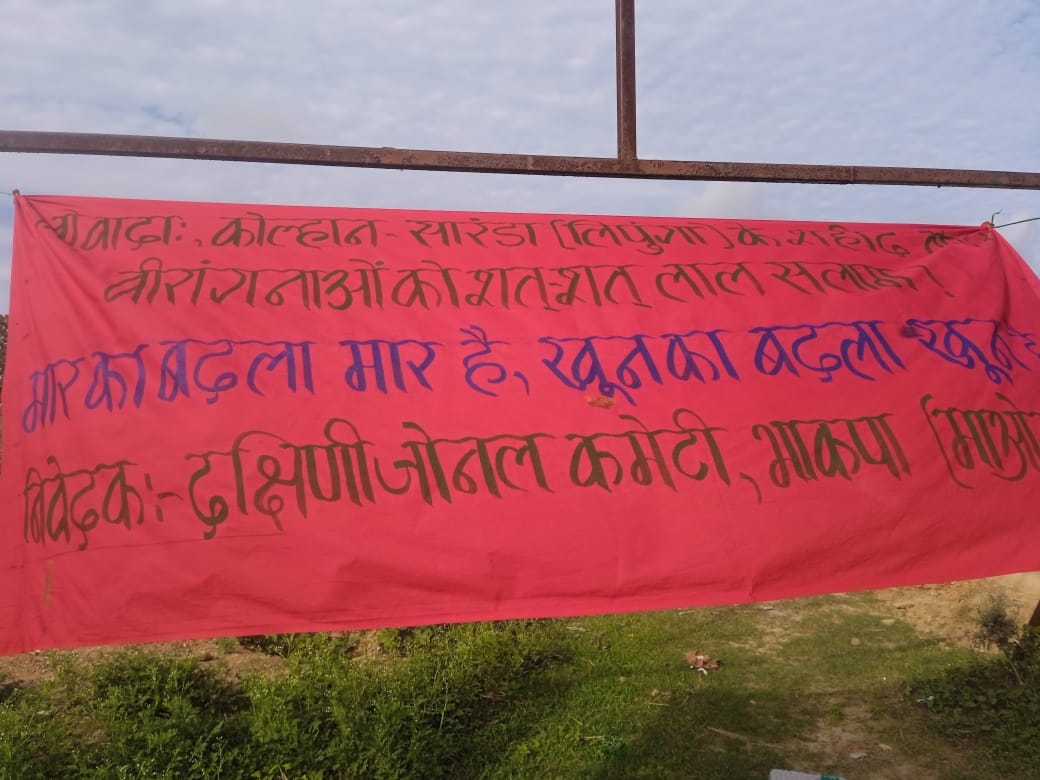 कोल्हान- सारंडा (लिपुंगा) के शहीद
वीरांगनाओं को शत्-शत् लाल सलाम।
मार का बदला मार है, खून का बदला खून है
निवेदक:- दक्षिणी जोनल कमेटी, भाकपा (माओ